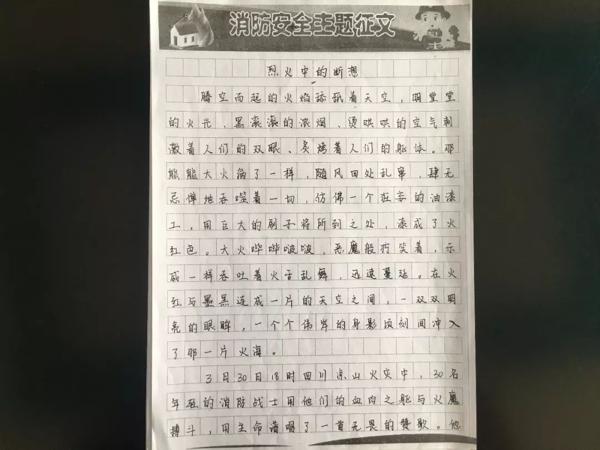 消防安全主题征文
烈火中的断想
腾空而起的火焰舔舐着天空，明堂堂
的火光、黑滚滚的浓烟、烫哄哄的空气刺
激着人们的双眼、炙烤着人们的躯体。那
熊熊大火疯了一样，随风四处乱窜，肆无
忌惮地吞噬着一切，仿佛一个狂妄的油漆
工，用巨大的刷子将所到之处，漆成了火
红色。大火哔哔啵啵，恶魔般狞笑着，示
威一样吞吐着火舌乱舞，迅速蔓延。在火
红与墨黑连成一片的天空之间，一双双明
亮的眼眸，一个个伟岸的身影顷刻间冲入
了那一片火海。
3月30日18时四川凉山火灾中，30名
年轻的消防战士用他们的血肉之躯与火魔
搏斗，用生命谱唱了一首无畏的赞歌。他